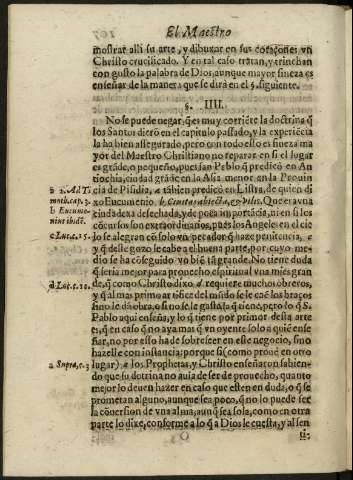 El Maestro
mostrar alli su arte, y dibuxar en sus coraçones vn
Christo crucificado. Y en tal caso tratan, y trinchan
con gusto la palabra de Dios, aunque mayor fineza es
enseñar de la manera que se dirá en el §. siguiente.
§. IIII.
No se puede negar, q̃ es muy corriẽte la doctrina q̃
los Santos dierõ en el capitulo passado, y la experiẽcia
la ha bien assegurado, pero con todo ello es fineza ma
yor del Maestro Christiano no reparar en si el lugar
es grãde, o pequeño, pues san Pablo q̃ predicò en An
tiochia, ciudad grãde en la Asia menor en la Prouin
cia de Pisidia, a tãbien predicò en Listra, de quien di
xo Eucumenio. b, Ciuitas abiecta, & vilis. Que era vna
ciudadexa desechada, y de poca importãcia, ni en si los
cõcursos son extraordinarios, pues los Angeles en el cie
lo se alegran cõ solo vn pecador q̃ haze penitencia, c
y q̃ deste gozo le cabe a el buena parte, por cuyo me-
dio se ha cõseguido vn biẽ tã grande. No tiene duda
q̃ seria mejor para prouecho espiritual vna mies gran
de, q̃ como Christo dixo d requiere muchos obreros,
y q̃ al mas primo artifice del mũdo se le caẽ los braços
sino le dã obra, o si no se le gasta lo q̃ tiene, pero lo q̃ S.
Pablo aqui enseña, y lo q̃ tiene por primor desta arte
es, q̃ en caso q̃ no aya mas q̃ vn oyente solo a quiẽ ense
ñar, no por esso ha de sobreseer en este negocio, sino
hazelle con instancia: porque si (como prouè en otro
lugar) a los Prophetas, y Christo enseñaron sabien-
do que su dotrina no auia de ser de prouecho, quanto
mejor lo deuen hazer en caso que esten en duda, o q̃ se
prometan alguno, aunque sea poco, q̃ no lo puede ser
la cõuersion de vna alma, aunq̃ sea sola, como en otra
parte lo dixe, conforme a lo q̃ a Dios le cuesta, y al sen
ti-
a 2. Ad Ti
moth. cap. 3.
b Eucume-
nius ibidẽ.
c Luc. c. 15.
d Luc. c. 10.
a Supra, c. 3